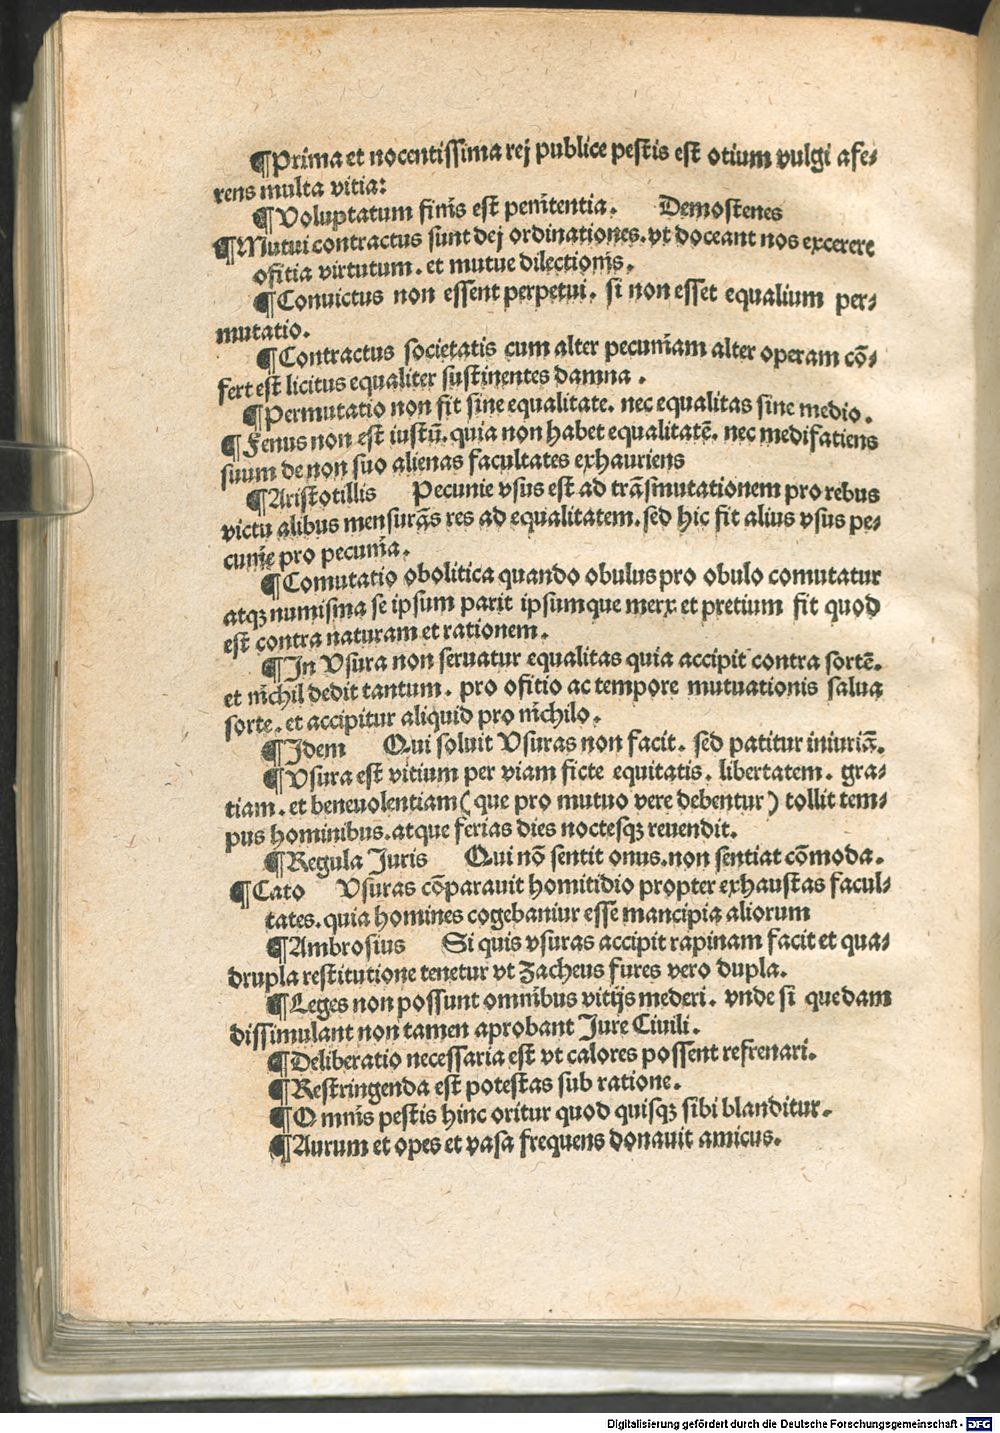 ¶Prima et nocentissima rej publice pestis est otium vulgi afe⸗
rens multa vitia:
¶Voluptatum finis est penitentia. Demostenes
¶Mutui contractus sunt dej ordinationes. vt doceant nos excerere
ofitia virtutum. et mutue dilectionis.
¶Conuictus non essent perpetui. si non esset equalium per⸗
mutatio.
¶Contractus societatis cum alter pecuniam alter operam cō⸗
fert est licitus equaliter sustinentes damna.
¶Permutatio non fit sine equalitate. nec equalitas sine medio.
¶Fenus non est iustū. quia non habet equalitatē. nec medifatiens
suum de non suo alienas facultates exhauriens
¶Aristotillis Pecunie vsus est ad trāsmutationem pro rebus
victu alibus mensurās res ad equalitatem. sed hic fit alius vsus pe⸗
cunie pro pecunia.
¶Comutatio obolitica quando obulus pro obulo comutatur
atqꝫ numisma se ipsum parit ipsumque merx et pretium fit quod
est contra naturam et rationem.
¶In Vsura non seruatur equalitas quia accipit contra sortē.
et nichil dedit tantum. pro ofitio ac tempore mutuationis salua
sorte. et accipitur aliquid pro nichilo.
¶Idem Qui soluit Vsuras non facit. sed patitur iniuriā.
¶Vsura est vitium per viam ficte equitatis. libertatem. gra⸗
tiam. et beneuolentiam (que pro mutuo vere debentur) tollit tem⸗
pus hominibus. atque ferias dies noctesqꝫ reuendit.
¶Regula Juris Qui nō sentit onus. non sentiat cōmoda.
¶Cato Vsuras cōparauit homitidio propter exhaustas facul⸗
tates. quia homines cogebaniur esse mancipia aliorum
¶Ambrosius Si quis vsuras accipit rapinam facit et qua⸗
drupla restitutione tenetur vt Zacheus fures vero dupla.
¶Leges non possunt omnibus vitijs mederi. vnde si quedam
dissimulant non tamen aprobant Jure Ciuili.
¶Deliberatio necessaria est vt calores possent refrenari.
¶Restringenda est potestas sub ratione.
¶O mnis pestis hinc oritur quod quisqꝫ sibi blanditur.
¶Aurum et opes et vasa frequens donauit amicus.
Digitalisierung gefördert durch die Deutsche Forschungsgemeinschaft - DFG